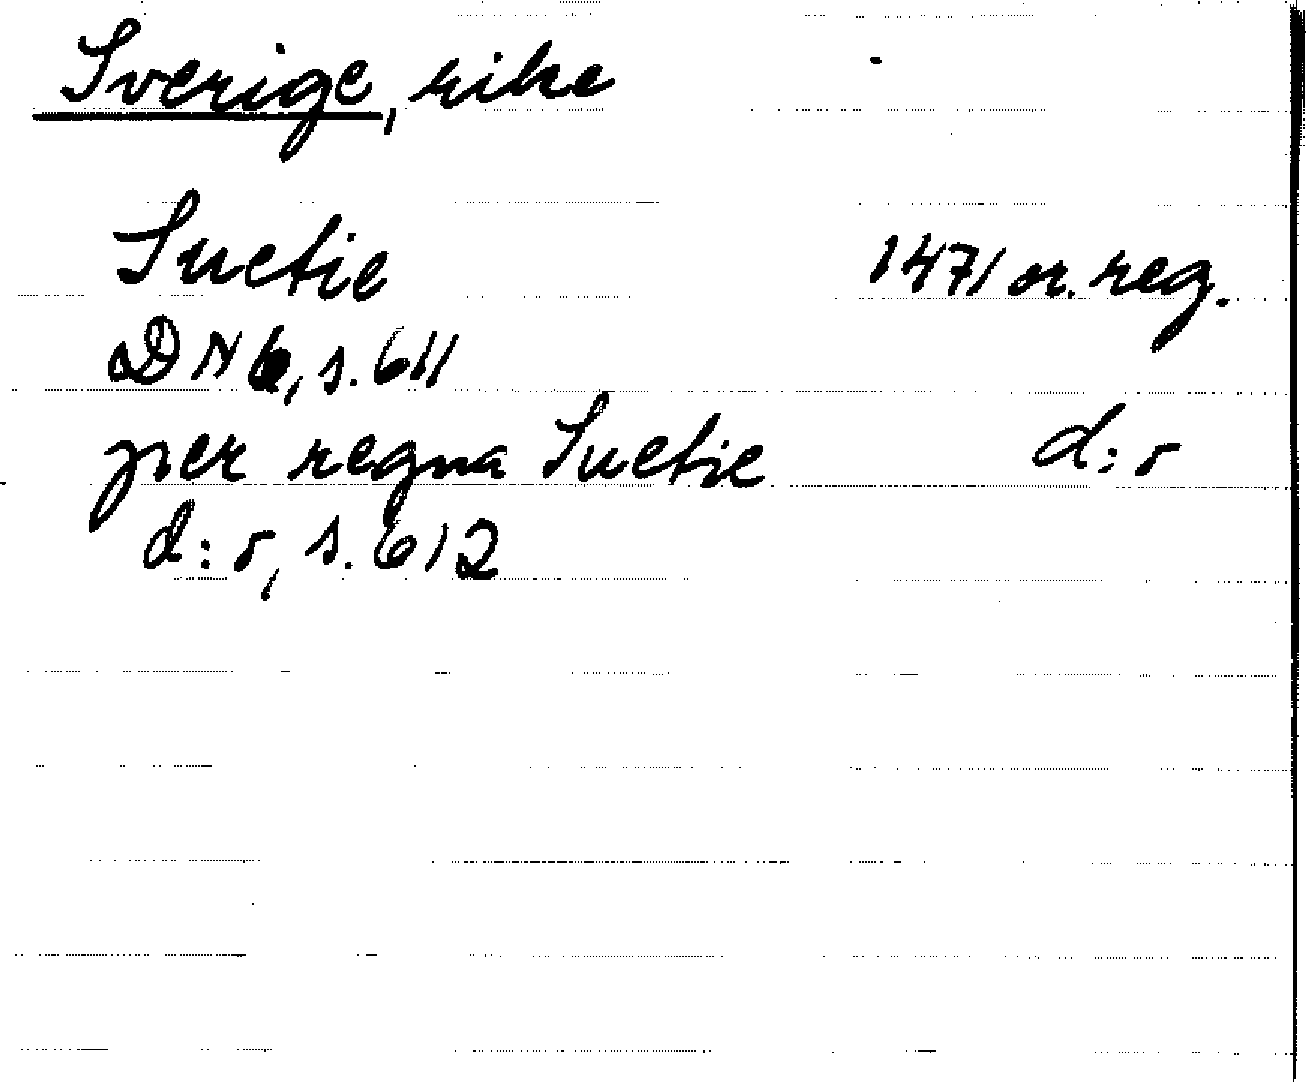 Sverige, rike
Suetie 1471 or. reg.
DN 6, s. 611
per regna Suetie d:o
d:o, s. 612